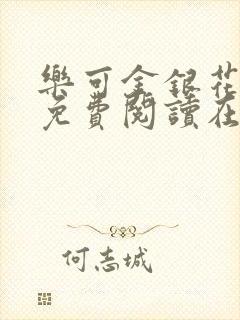 樂可金銀花
免費閱讀在
何志城